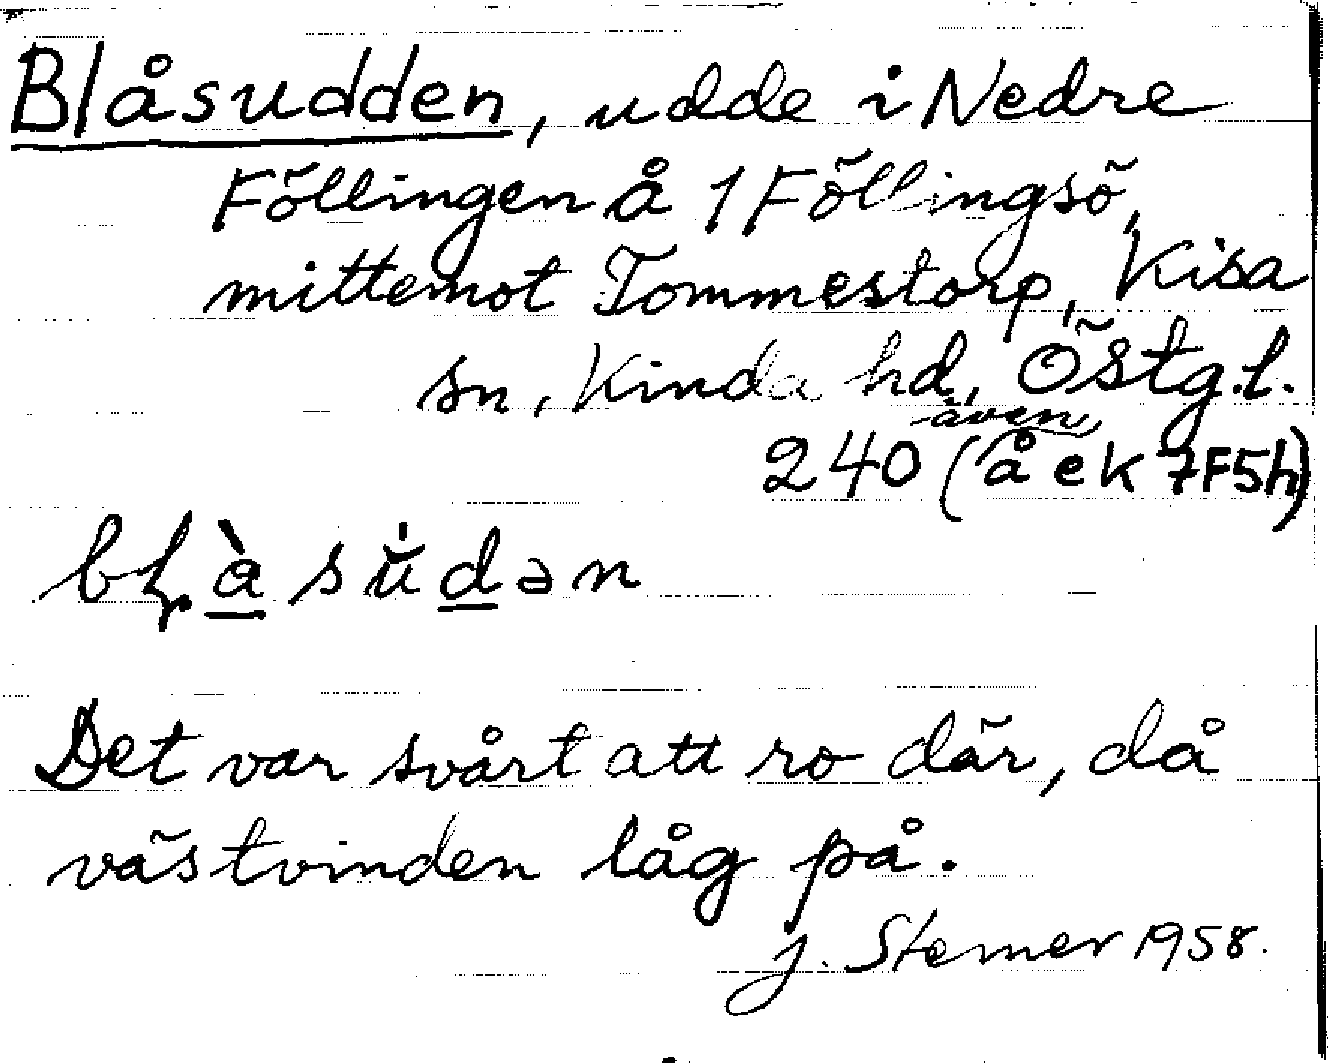 Blåsudden, udde i Nedre
Föllingen å 1 Föllingsö,
mittemot Tommestorp, Kisa
sn, Kinda hd, Östg.l.
även
240 (å ek 7F5h)
Det var svårt att ro där, då
västvinden låg på.
J. Sterner 1958.